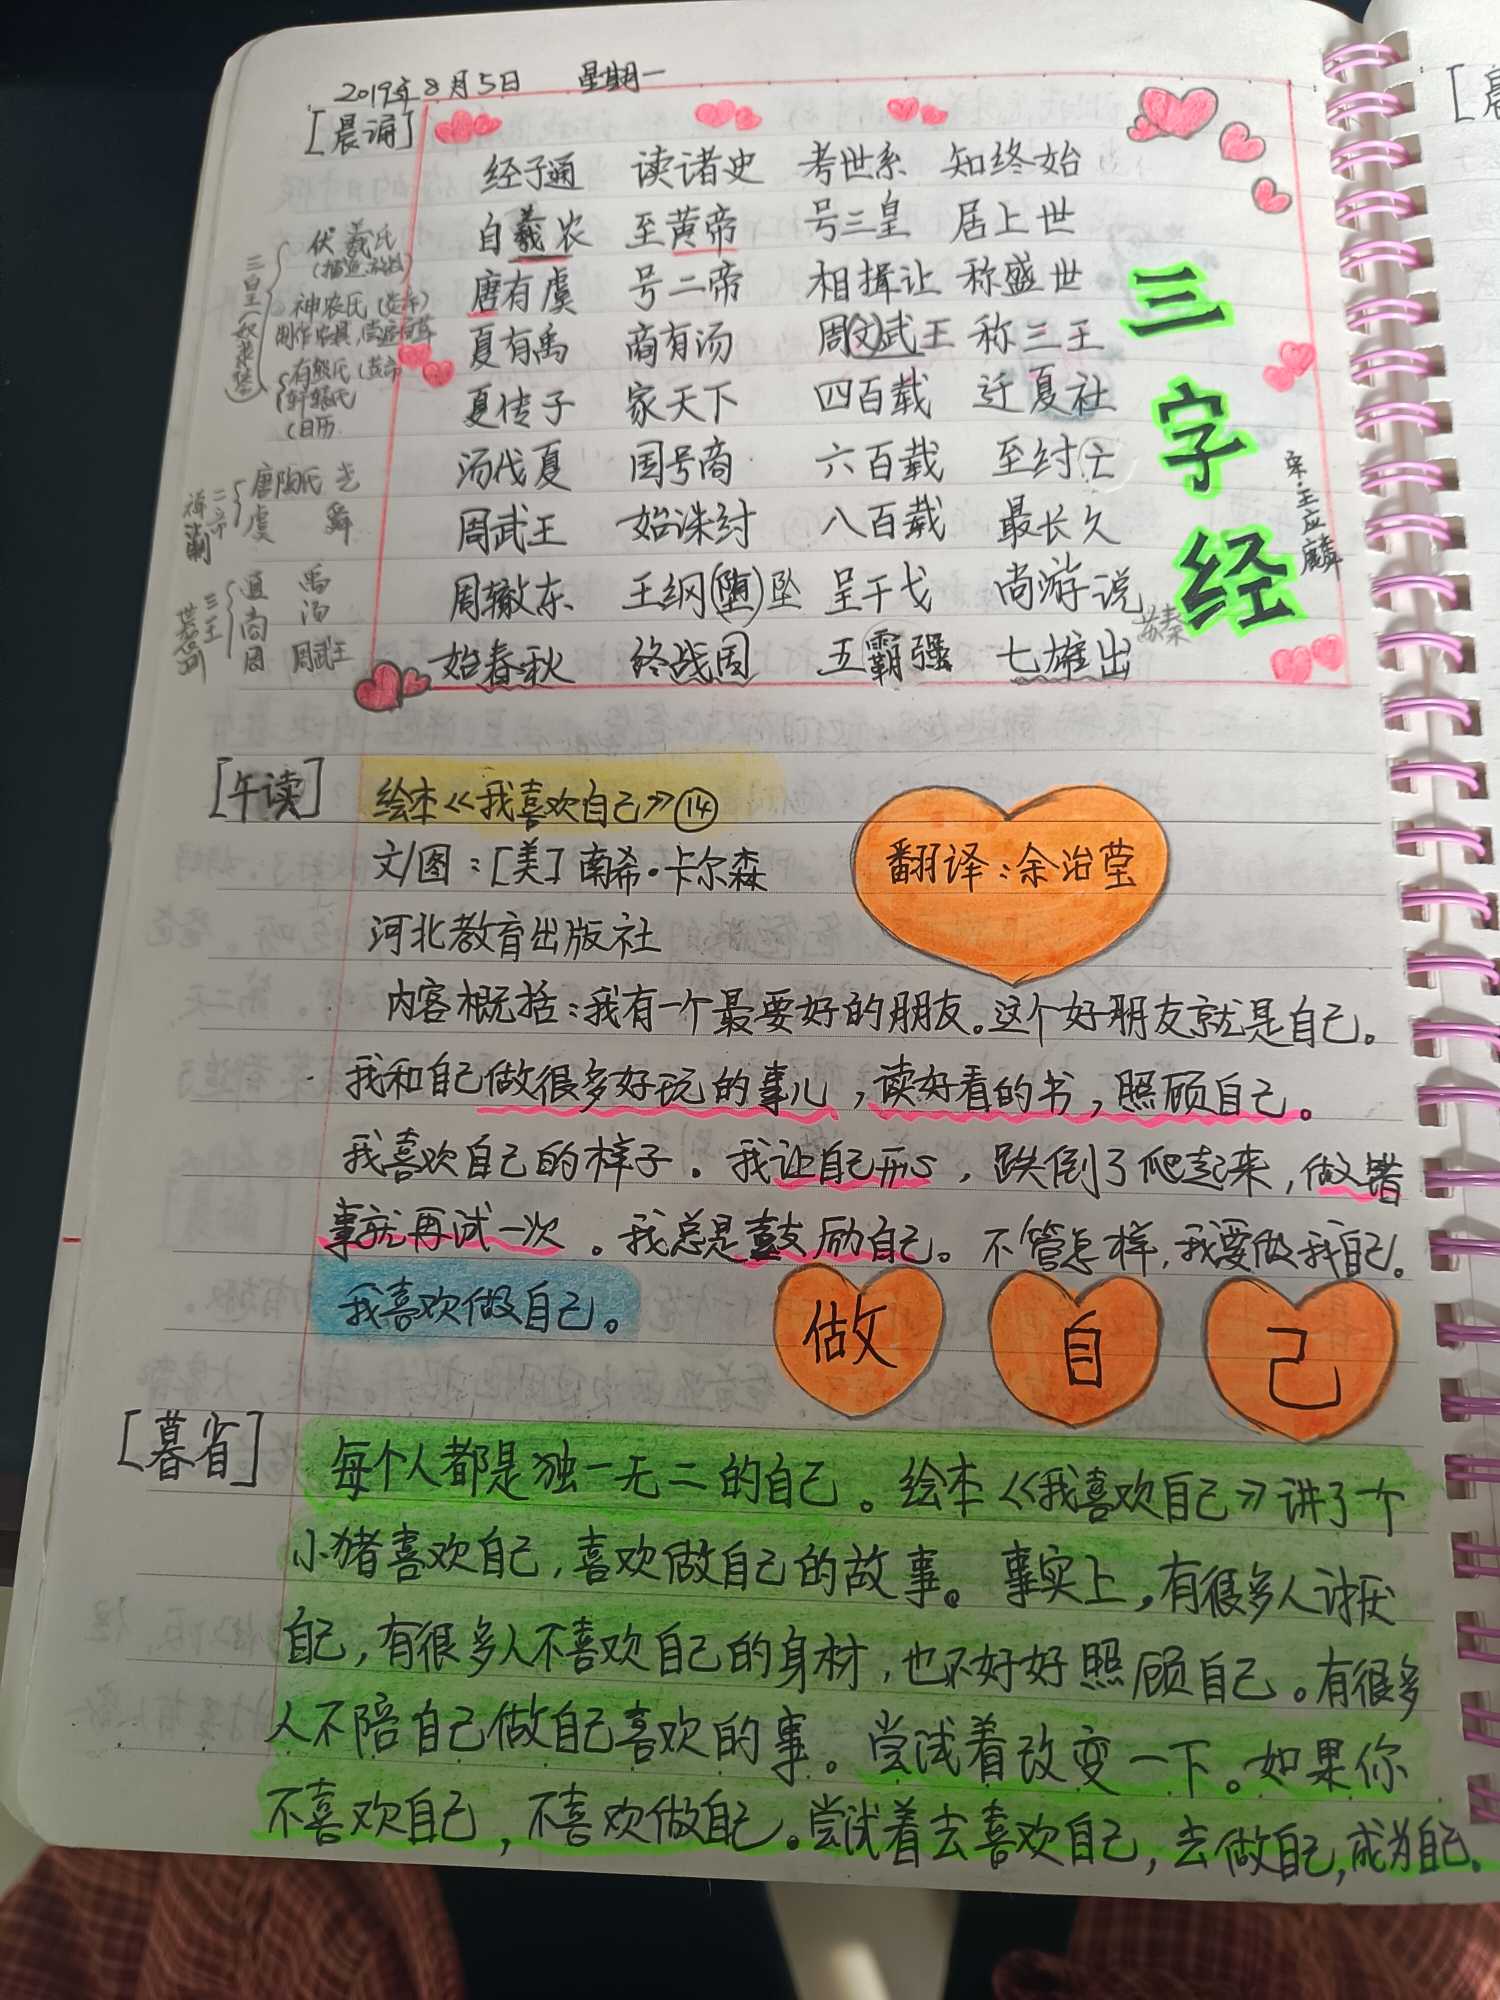 2019年8月5日 星期一
[晨诵]
经子通 读诸史 考世系 知终始
自羲农 至黄帝 号三皇 居上世
唐有虞 号二帝 相揖让 称盛世
夏有禹 商有汤 周(文)武王 称三王
夏传子 家天下 四百载 迁夏社
汤伐夏 国号商 六百载 至纣亡
周武王 始诛纣 八百载 最长久
周辙东 王纲(堕)坠 呈干戈 尚游说
苏秦
始春秋 终战国 五霸强 七雄出
三字经
宋·王应麟
三皇
伏羲氏
神农氏
制作农具,尝遍百草
有熊氏(黄帝
轩辕氏
(日历
禅让制
二帝
唐陶氏 尧
虞 舜
世袭制
三王
禹
商 汤
周 周武王
[午读]
绘本《我喜欢自己》⑭
文/图:[美]南希·卡尔森
翻译:余治莹
河北教育出版社
内容概括:我有一个最要好的朋友。这个好朋友就是自己。
我和自己做很多好玩的事儿,读好看的书,照顾自己。
我喜欢自己的样子。我让自己开心,跌倒了爬起来,做错
事就再试一次。我总是鼓励自己。不管怎样,我要做我自己。
我喜欢做自己。
做 自 己
[暮省]
每个人都是独一无二的自己。绘本《我喜欢自己》讲了个
小猪喜欢自己,喜欢做自己的故事。事实上,有很多人讨厌
自己,有很多人不喜欢自己的身材,也不好好照顾自己。有很多
人不陪自己做自己喜欢的事。尝试着改变一下。如果你
不喜欢自己,不喜欢做自己。尝试着去喜欢自己,去做自己,成为自己。